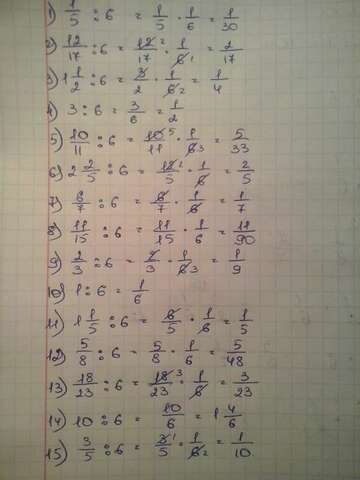 1) 1/5 : 6 = 1/5 · 1/6 = 1/30
2) 12/17 : 6 = 12 2/17 · 1/6 1 = 2/17
3) 1 1/2 : 6 = 3/2 · 1/6 2 = 1/4
4) 3 : 6 = 3/6 = 1/2
5) 10/11 : 6 = 10 5/11 · 1/6 3 = 5/33
6) 2 2/5 : 6 = 12 2/5 · 1/6 = 2/5
7) 6/7 : 6 = 6/7 · 1/6 = 1/7
8) 11/15 : 6 = 11/15 · 1/6 = 11/90
9) 2/3 : 6 = 2/3 · 1/6 3 = 1/9
10) 1 : 6 = 1/6
11) 1 1/5 : 6 = 6/5 · 1/6 = 1/5
12) 5/8 : 6 = 5/8 · 1/6 = 5/48
13) 18/23 : 6 = 18 3/23 · 1/6 = 3/23
14) 10 : 6 = 10/6 = 1 4/6
15) 3/5 : 6 = 3 1/5 · 1/6 2 = 1/10